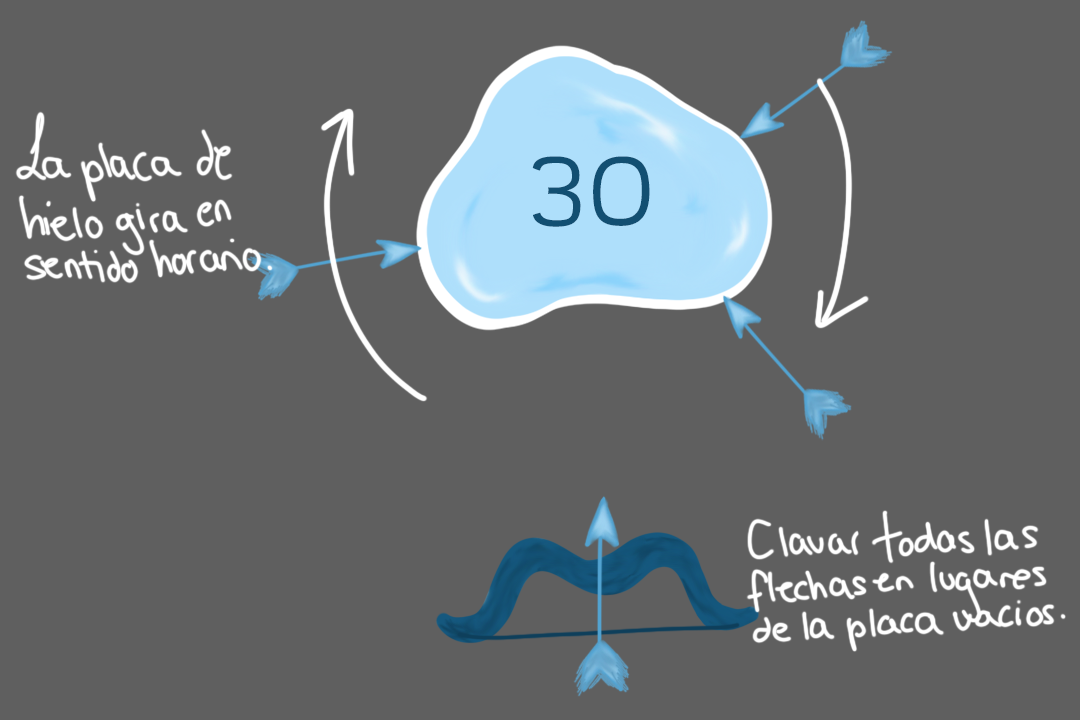 La placa de
hielo gira en
sentido horario.
30
Clavar todas las
flechas en lugares
de la placa vacios.